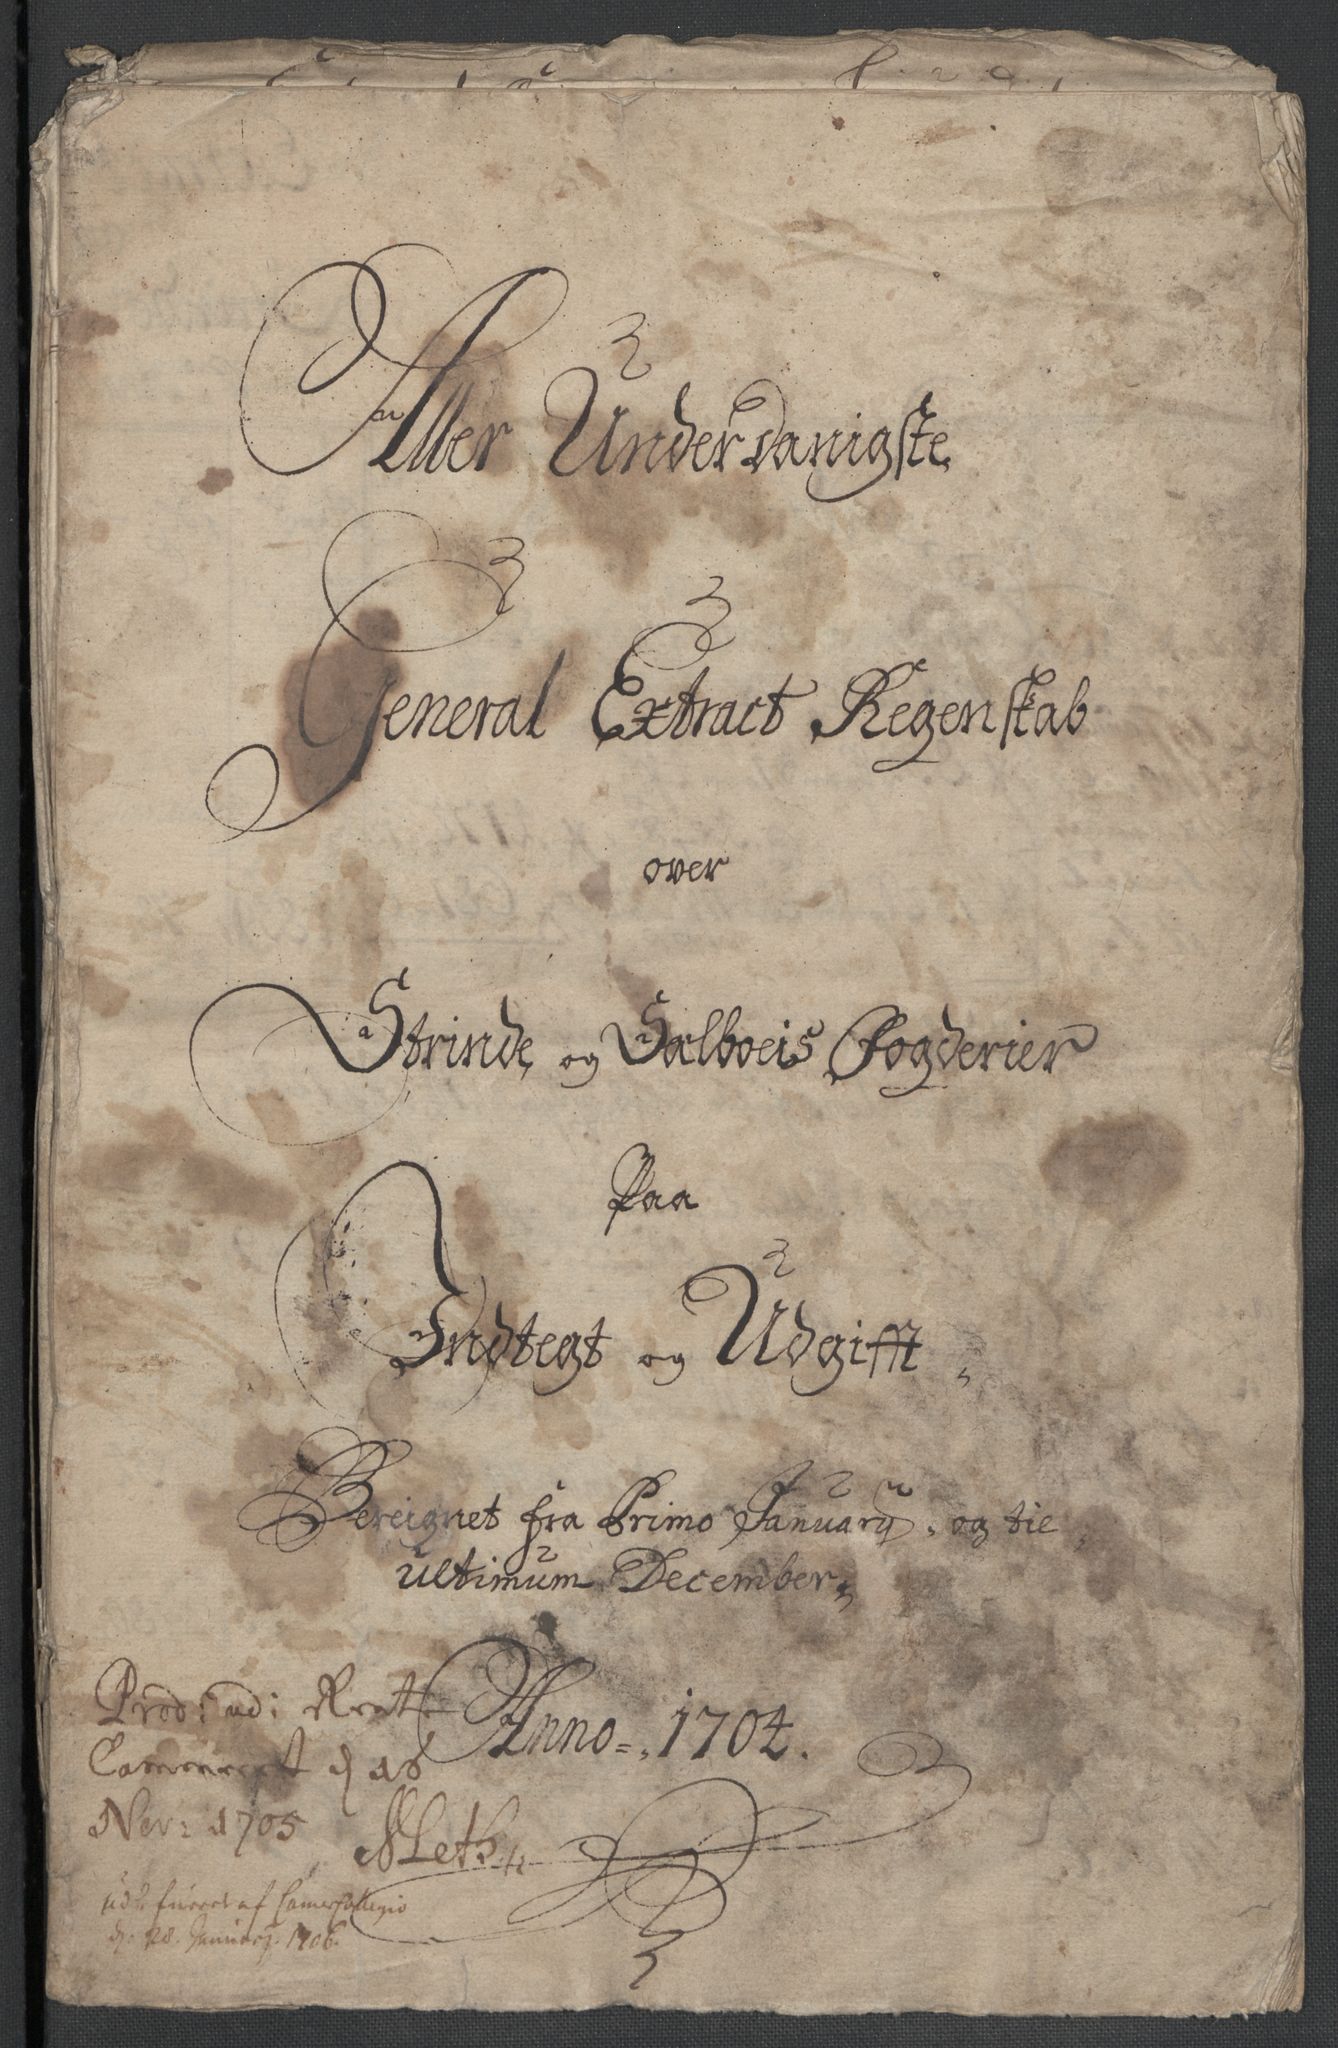 Aller Underdanigste
General Extract Regenskab
over
Strinde og Sælboeis Fogderier
Paa
Indtegt og Udgifft
Bereignet fra Primo January og til
ultimum December
Anno 1704.
Prod: ud: Rente
Cammeret d 18
Nov: 1705
NLeth
af CamerCollegio
d: 28 January 1706